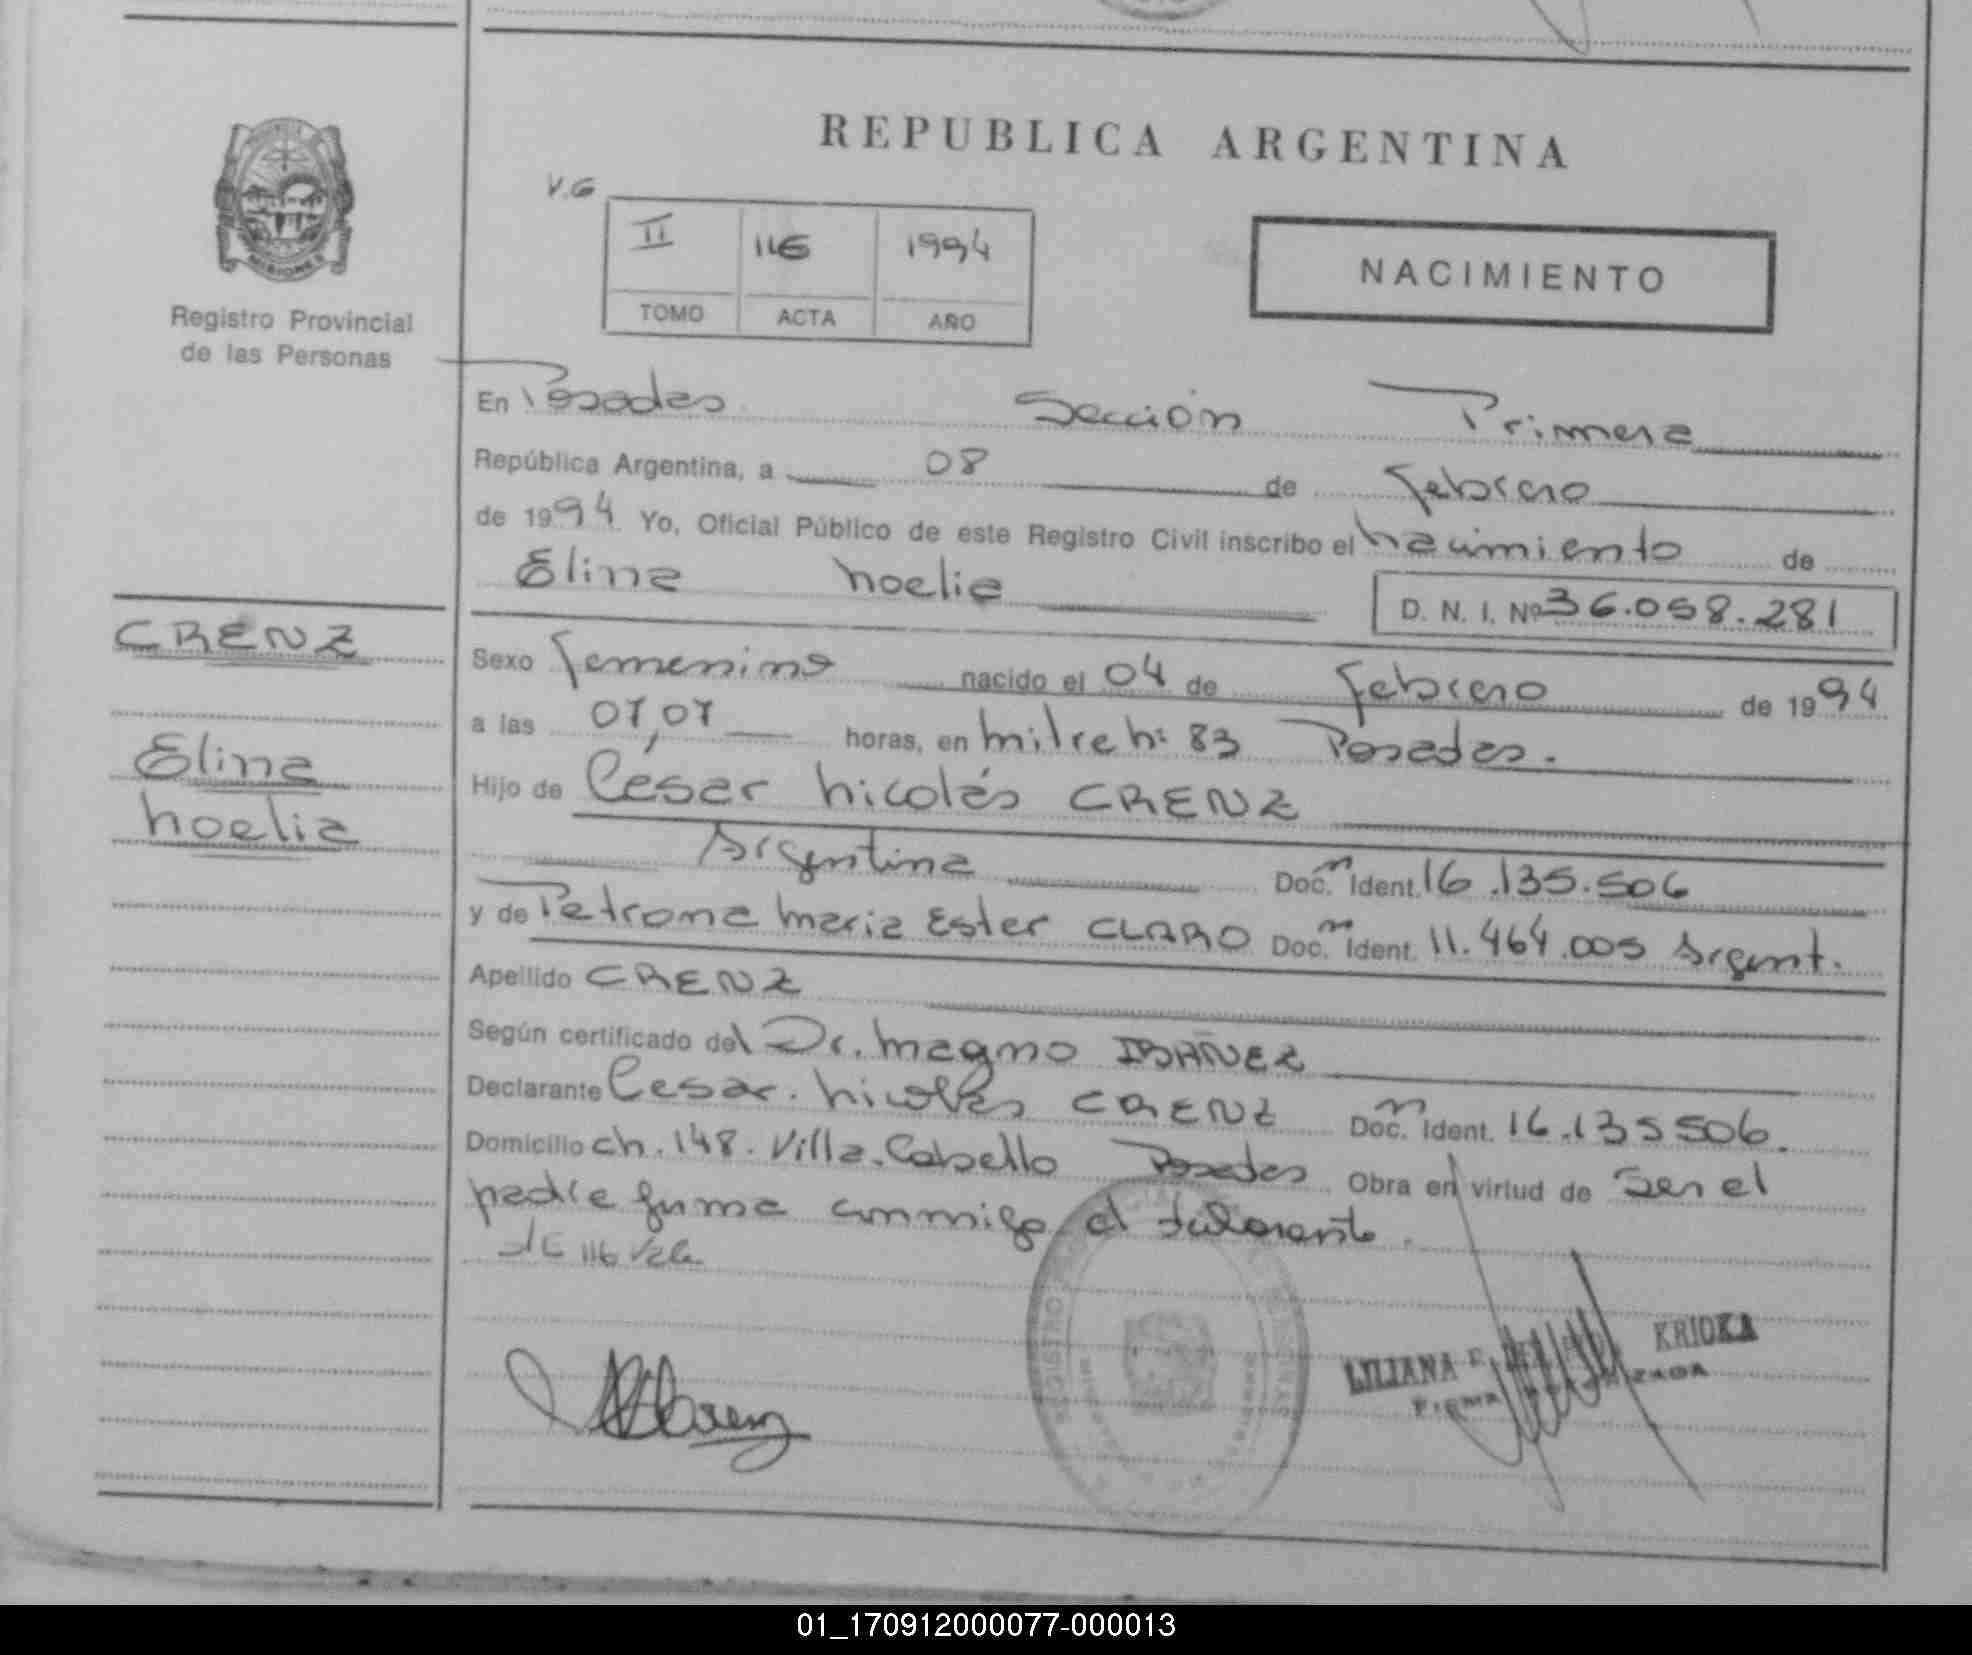 REPUBLICA ARGENTINA
V.G
II 116 1994
TOMO ACTA AÑO
NACIMIENTO
MISIONES
Registro Provincial
de las Personas
En Posadas Sección Primera
República Argentina, a 08 de febrero
de 1994 Yo, Oficial Público de este Registro Civil inscribo el nacimiento de
Elina Noelia D. N. I. Nº 36.058.281
CRENZ
Elina
Noelia
Sexo femenino nacido el 04 de febrero de 1994
a las 07,07 horas, en Mitre Nº 83 Posadas.
Hijo de César Nicolás CRENZ
Argentina Doc. Ident. 16.135.506
y de Petrona Maria Ester CLARO Doc. Ident. 11.464.005 Argent.
Apellido CRENZ
Según certificado del Dr. Magno IBAÑEZ
Declarante Cesar. Nicolás CRENZ Doc. Ident. 16.135506.
Domicilio ch. 148. Villa. Cabello Posadas Obra en virtud de Ser el
padre firma conmigo el declarante.
116 Vale
REGISTRO
LILIANA KRIOKA
FIRMA
01_170912000077-000013